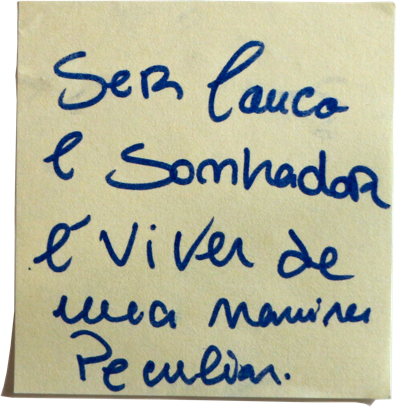 Ser louco
e Somhador
é viver de
uma maneira
Peculiar.